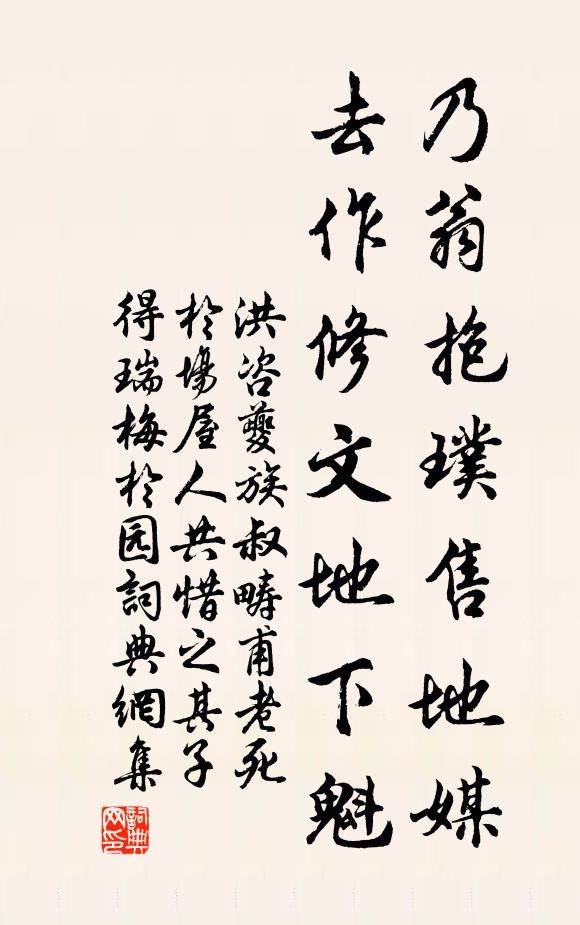 乃翁抱璞售地媒
去作修文地下魁
洪咨夔族叔畴甫老死
於場屋人共惜之其子
得瑞梅於园詞典網集
詞典網印